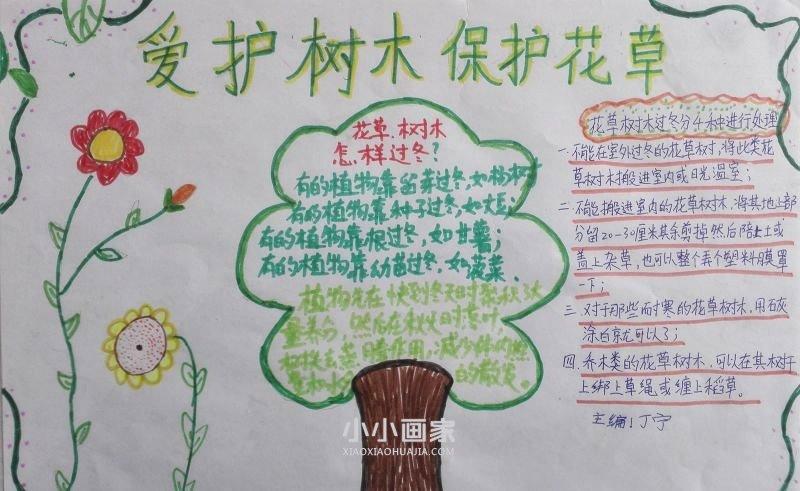 爱护树木 保护花草
花草、树木
怎样过冬?
有的植物靠留芽过冬,如杨树
有的植物靠种子过冬,如大豆;
有的植物靠根过冬,如甘薯;
有的植物靠幼苗过冬,如菠菜.
植物先在快到冬天时
量养分,然后在秋天时
花草树木过冬分4种进行处理
一.不能在室外过冬的花草树木,将此类花
草树木搬进室内或日光温室;
二.不能搬进室内的花草树木,将其地上部
分留20-30厘米其余剪掉然后陪土或
盖上杂草,也可以整个弄个塑料膜罩
一下;
三.对于那些耐寒的花草树木,用石灰
涂白就可以了;
四.乔木类的花草树木,可以在其树干
上绑上草绳或缠上稻草。
主编:丁宁
小小画家
XIAOXIAOHUAJIA.COM